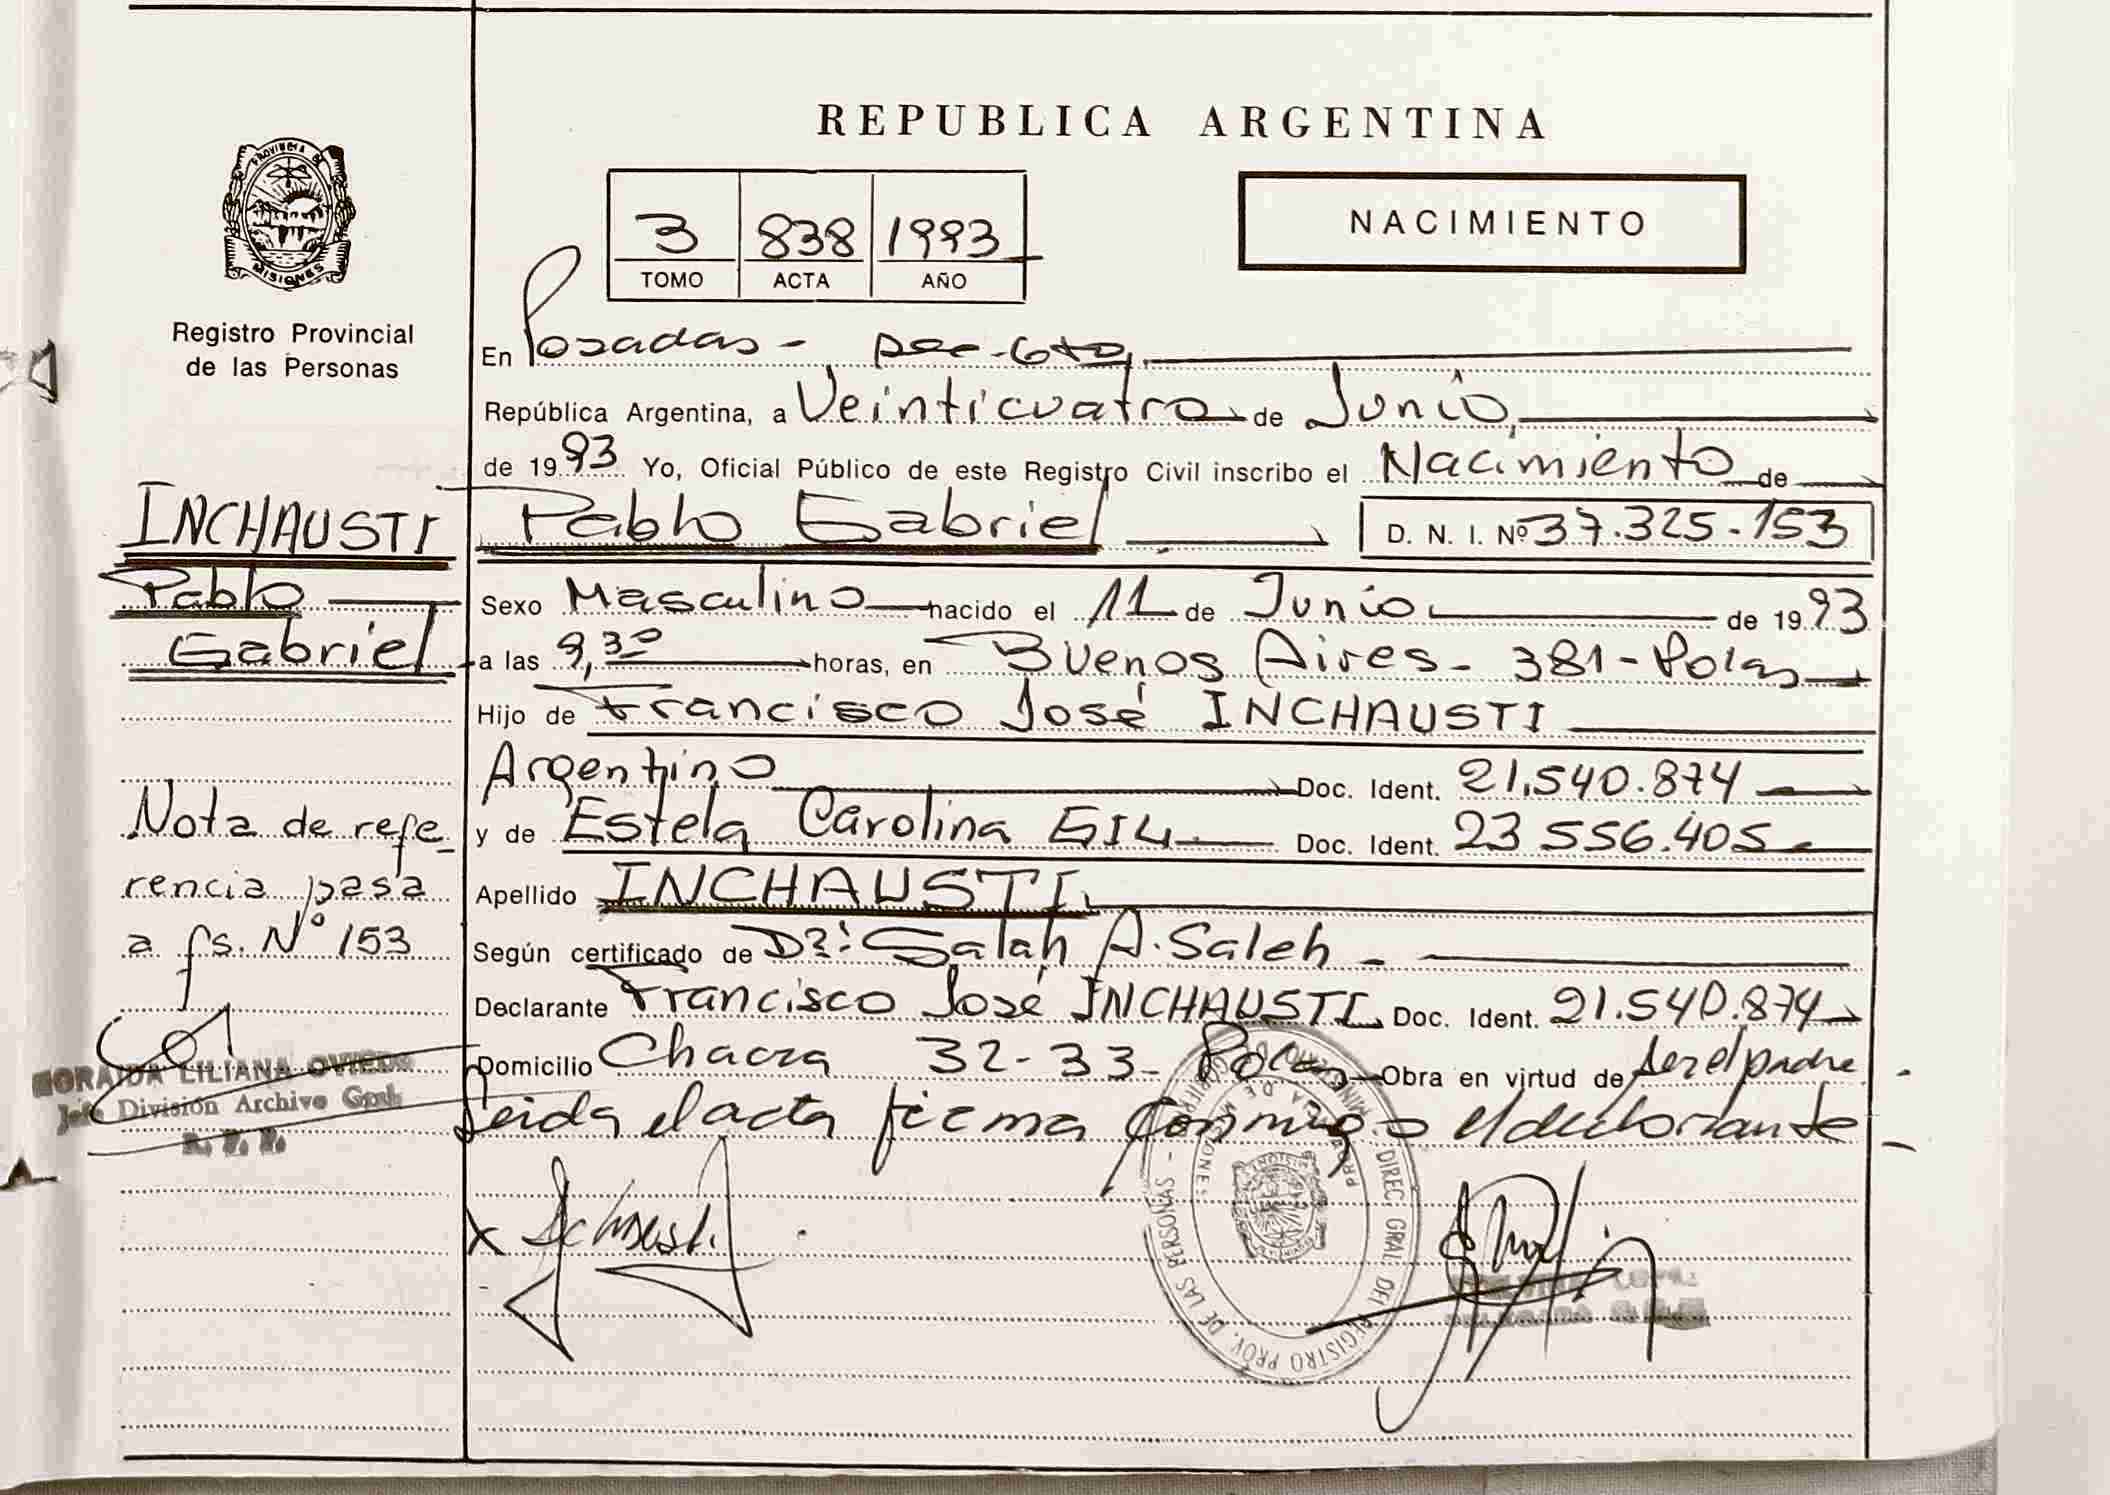 REPUBLICA ARGENTINA
PROVINCIA DE
MISIONES
Registro Provincial
de las Personas
3 838 1993
TOMO ACTA AÑO
NACIMIENTO
En Posadas - Sec. 6ta,
República Argentina, a Veinticuatro de Junio,
de 1993 Yo, Oficial Público de este Registro Civil inscribo el Nacimiento de
Pablo Gabriel D. N. I. Nº 37.325-153
Sexo Masculino nacido el 11 de Junio de 1993
a las 9,30 horas, en Buenos Aires - 381 - Pdas
Hijo de Francisco José INCHAUSTI
Argentino Doc. Ident. 21.540.874
y de Estela Carolina GIL Doc. Ident. 23 556.405
Apellido INCHAUSTI
Según certificado de Dr: Salah A. Saleh
Declarante Francisco José INCHAUSTI Doc. Ident. 21.540.874
Domicilio Chacra 32-33 - Pdas Obra en virtud de ser el padre
Leida el acta firma conmigo el declarante
INCHAUSTI
Pablo
Gabriel
Nota de refe-
rencia pasa
a fs. Nº 153
ZORAIDA LILIANA OVIEDO
Jefe División Archivo Gral.
R. P. P.
DIREC. GRAL. DEL REGISTRO PROV. DE LAS PERSONAS -
MINISTERIO DE GOBIERNO
PROVINCIA DE MISIONES